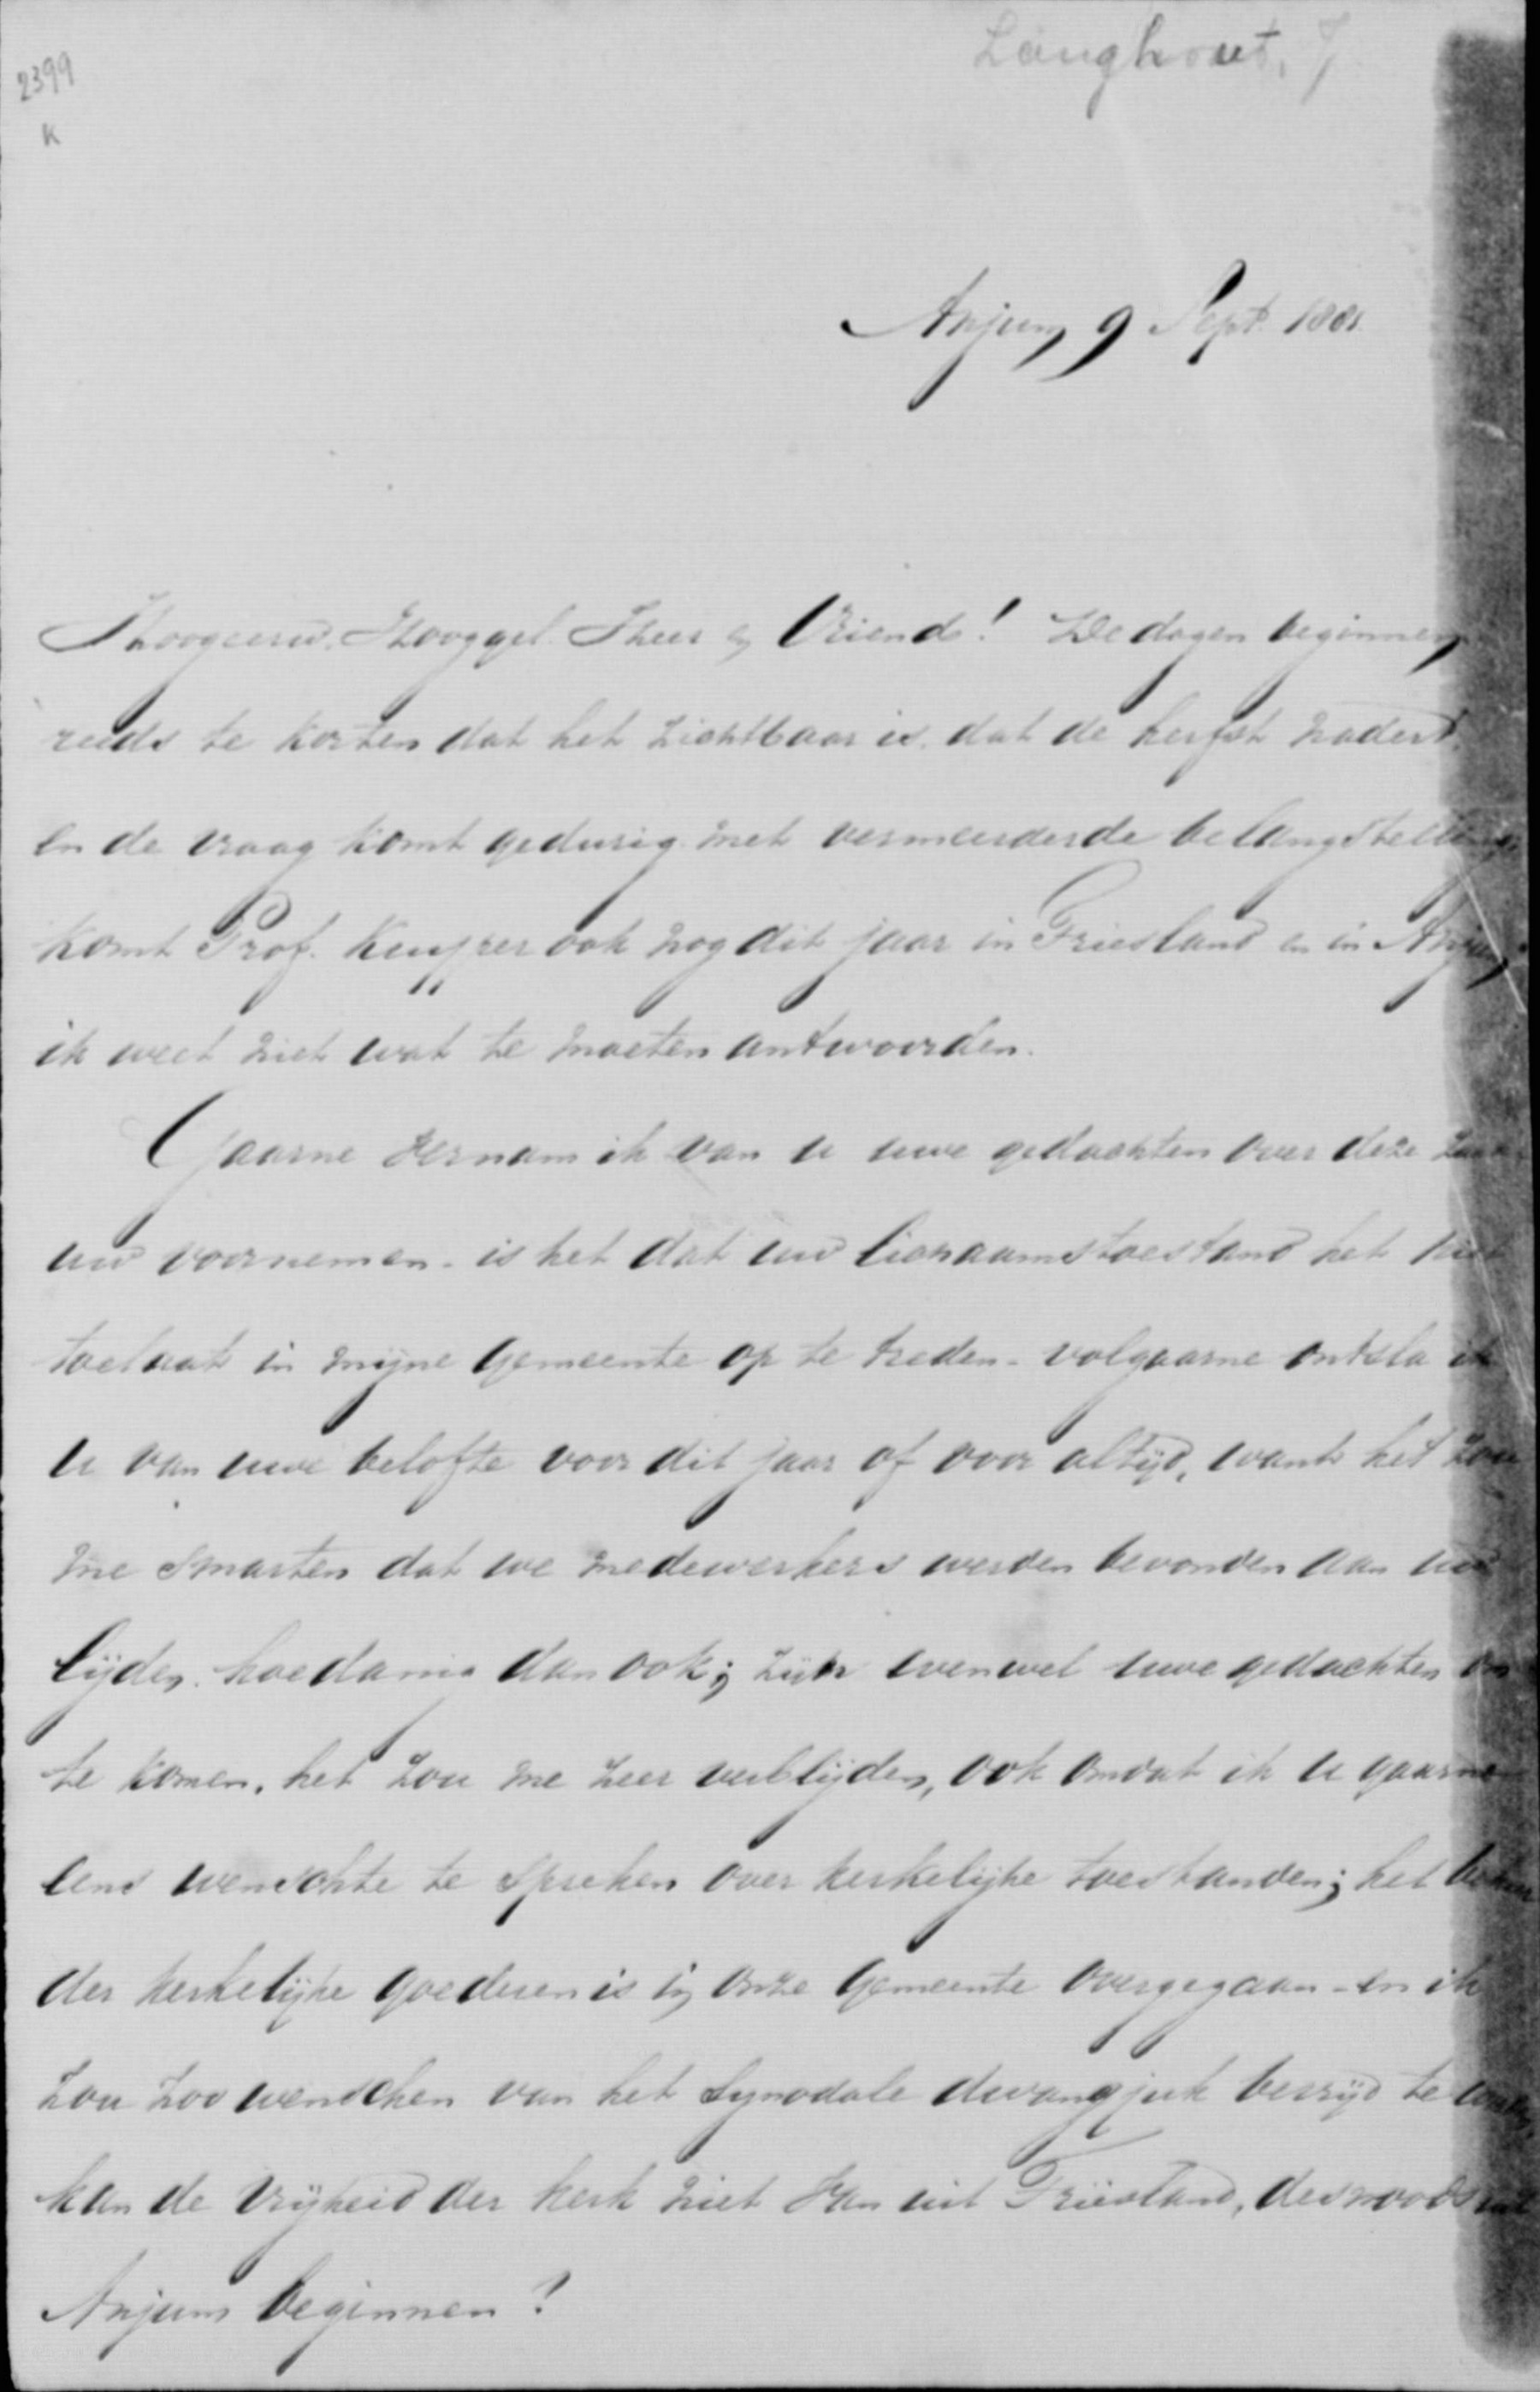 2399
K
Langhout, J
Anjum 9 Sept. 1881.
Hoogeerw. Hooggel. Heer en Vriend! De dagen beginnen
reeds te korten dat het zichtbaar is dat de herfst nadert.
en de vraag komt gedurig met vermeerderde belangstelling,
komt Prof. Kuyper ook nog dit jaar in Friesland en in Anjum,
ik weet niet wat te moeten antwoorden.
Gaarne vernam ik van u uwe gedachten over deze zaak
uw voornemen. is het dat uw lichaamstoestand het niet
toelaat in mijne gemeente op te treden - volgaarne ontsla ik
U van uwe belofte voor dit jaar of voor altijd, want het zou
me smarten dat we medewerkers werden bevonden aan uw
lijden. hoedanig dan ook; zijn evenwel uwe gedachten om
te komen. het zou me zeer verblijden, ook omdat ik U gaarne
eens wenschte te spreken over kerkelijke toestanden; het beheer
der kerkelijke goederen is in onze gemeente overgegaan - en ik
zou zoo wenschen van het Synodale dwangjuk bevrijd te
kan de Vrijheid der kerk niet van uit Friesland, desnoods
Anjum beginnen?